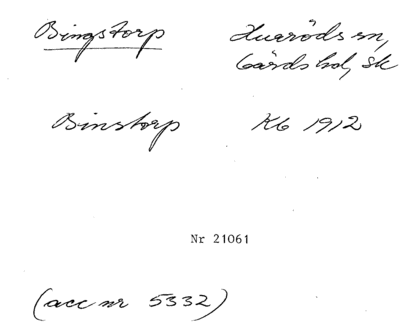 Bingstorp Huaröds sn,
Gärds hd, Sk
Binstorp Kb 1912
Nr 21061
(acc nr 5332)